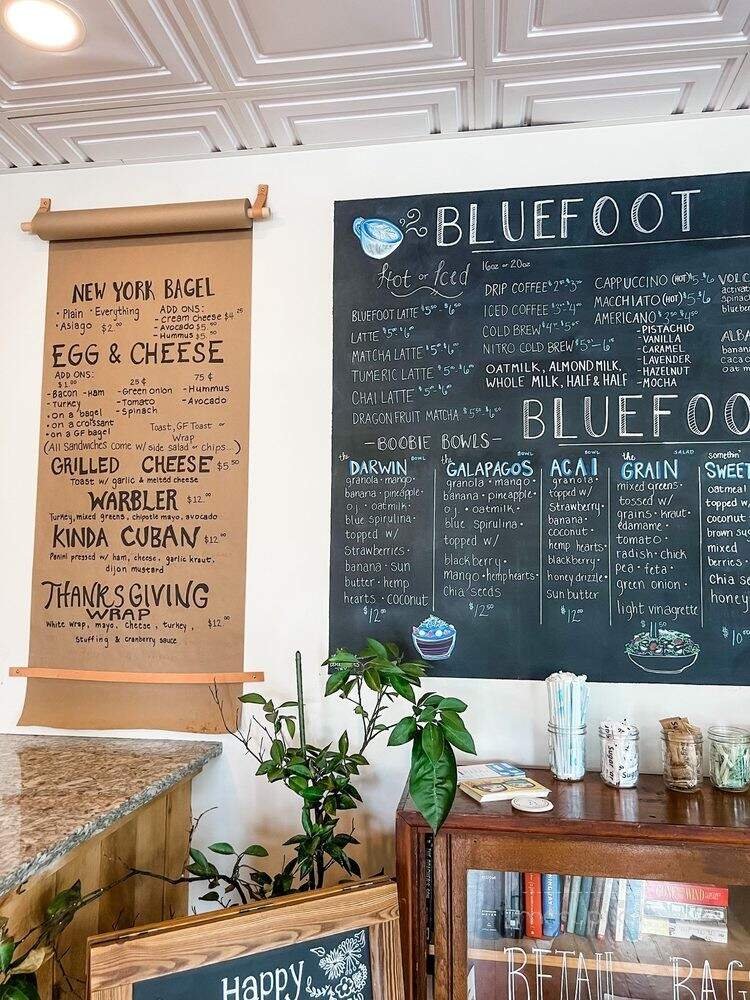 NEW YORK BAGEL
• Plain • Everything
• Asiago $2.00
ADD ONS:
- cream cheese $4.25
- Avocado $5.50
- Hummus $5.50
EGG & CHEESE
ADD ONS:
$1.00
- Bacon - Ham
- Turkey
25¢
- Green onion
- Tomato
- Spinach
75¢
- Hummus
- Avocado
• on a bagel
• on a croissant
• on a GF bagel
Toast, GF Toast or
Wrap
(All Sandwiches come w/ side salad or chips...)
GRILLED CHEESE $5.50
Toast w/ garlic & melted cheese
WARBLER $12.00
Turkey, mixed greens, chipotle mayo, avocado
KINDA CUBAN $12.00
Panini pressed w/ ham, cheese, garlic kraut,
dijon mustard
THANKSGIVING
WRAP
White wrap, mayo, cheese, turkey, $12.00
Stuffing & cranberry sauce
BLUEFOOT
Hot or Iced
16oz or 20oz
BLUEFOOT LATTE
LATTE
MATCHA LATTE
TUMERIC LATTE
CHAI LATTE
DRAGON FRUIT MATCHA
DRIP COFFEE
ICED COFFEE
COLD BREW
NITRO COLD BREW
OATMILK, ALMOND MILK,
WHOLE MILK, HALF & HALF
CAPPUCCINO (HOT)
MACCHIATO (HOT)
AMERICANO
- PISTACHIO
- VANILLA
- CARAMEL
- LAVENDER
- HAZELNUT
- MOCHA
BLUEFOO
- BOOBIE BOWLS -
the DARWIN BOWL
granola • mango •
banana • pineapple •
o.j. • oatmilk •
blue spirulina •
topped w/
strawberries •
banana • sun
butter • hemp
hearts • coconut
$12.00
the GALAPAGOS BOWL
granola • mango •
banana • pineapple •
o.j. • oatmilk •
blue spirulina •
topped w/
blackberry •
mango • hemp hearts •
chia seeds
$12.50
ACAI BOWL
granola •
topped w/
strawberry •
banana •
coconut •
hemp hearts •
blackberry •
honey drizzle •
sun butter
$12.00
the GRAIN SALAD
mixed greens •
tossed w/
grains • kraut •
edamame •
tomato •
radish • chick
pea • feta •
green onion •
light vinagrette
somethin'
SWEET
oatmeal
topped w/
coconut
brown sug
mixed
berries •
Chia see
honey
Happy
GONE WITH THE WIND
RETAIL BAG